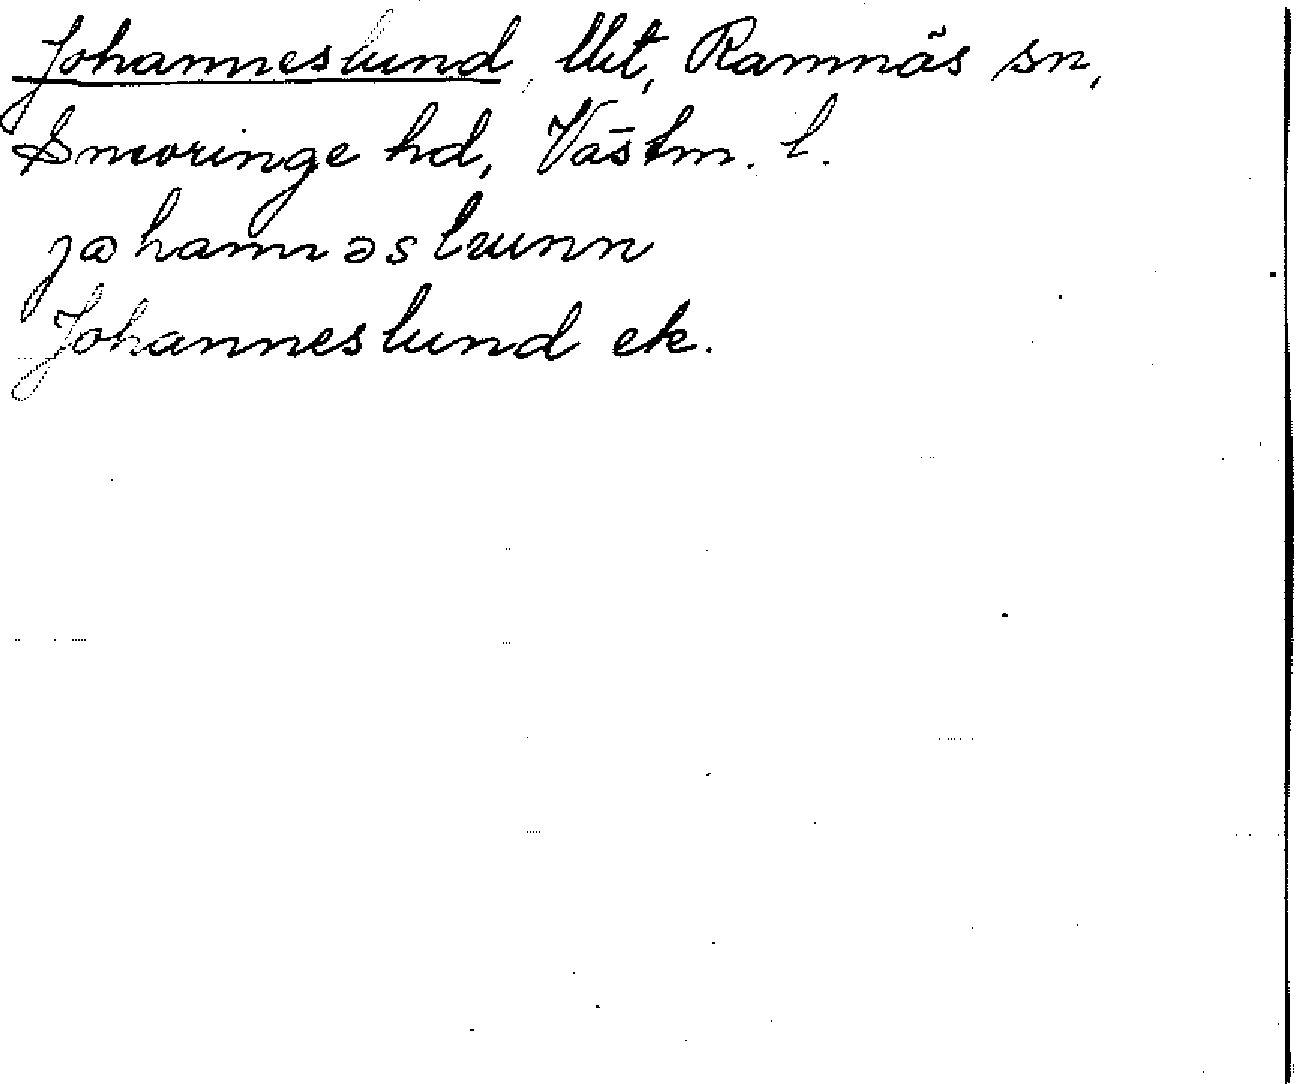 Johanneslund, llrt, Ramnäs sn,
Snevringe hd, Västm. l.
johannəslunn
Johanneslund ek.